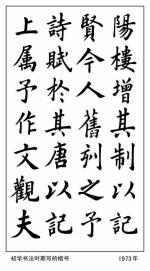 陽樓增其制以
賢今人舊列之予
詩賦於其唐以記
上属予作文觀夫
初学书法时期写的楷书
1973年